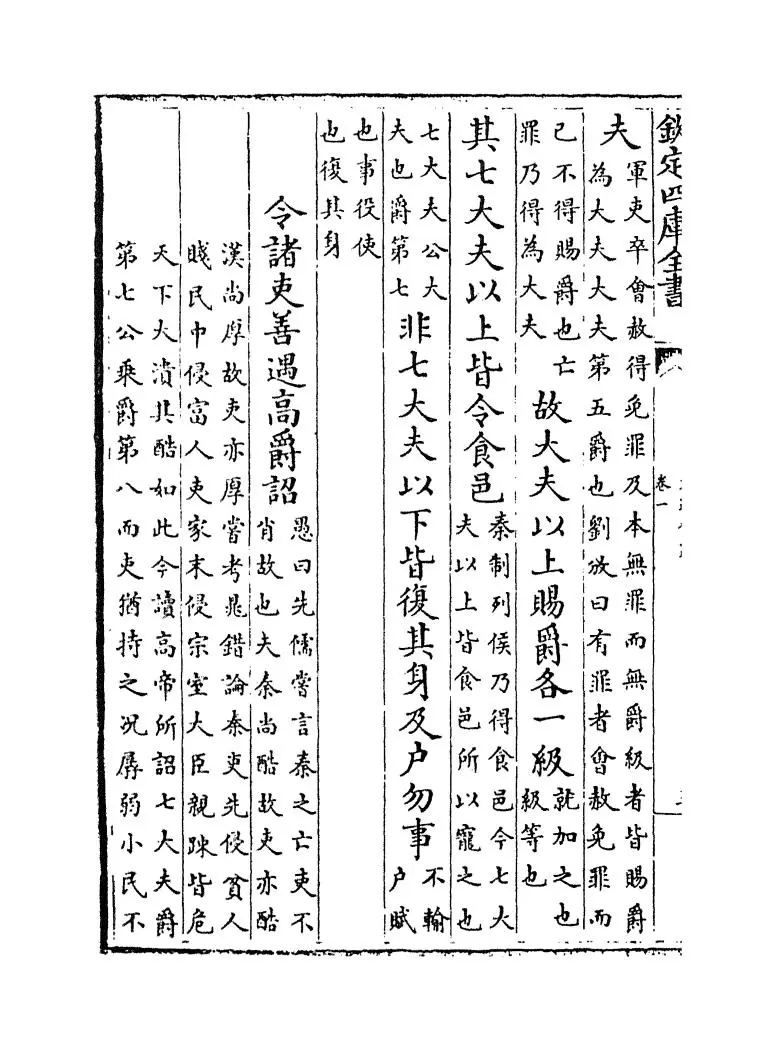 欽定四庫全書
卷一
夫
軍吏卒會赦得免罪及本無罪而無爵級者皆賜爵
為大夫大夫第五爵也劉攽曰有罪者會赦免罪而
已不得賜爵也亡
罪乃得為大夫
故大夫以上賜爵各一級
就加之也
級等也
其七大夫以上皆令食邑
秦制列侯乃得食邑今七大
夫以上皆食邑所以寵之也
七大夫公大
夫也爵第七
非七大夫以下皆復其身及户勿事
不輸
户賦
也事役使
也復其身
令諸吏善遇高爵詔
愚曰先儒嘗言秦之亡吏不
肖故也夫秦尚酷故吏亦酷
漢尚厚故吏亦厚嘗考晁錯論秦吏先侵貧人
賤民中侵富人吏家末侵宗室大臣親踈皆危
天下大潰其酷如此今讀高帝所詔七大夫爵
第七公乘爵第八而吏猶持之况孱弱小民不